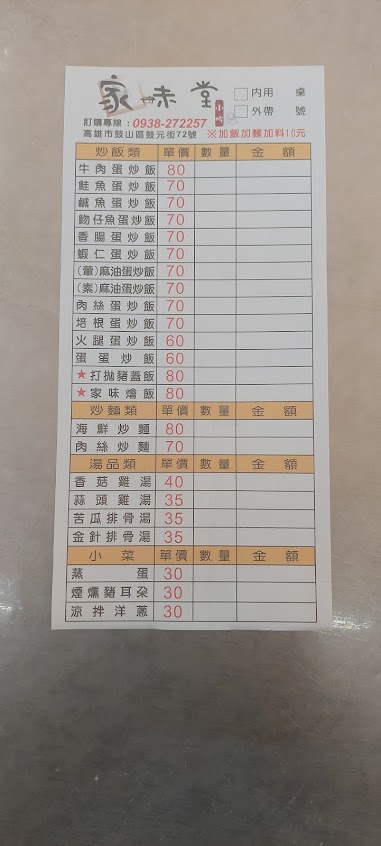 家味堂 小吃 內用 桌
外帶 號
訂購專線:0938-272257
高雄市鼓山區鼓元街72號 ※加飯加麵加料10元
炒飯類 單價 數量 金額
牛肉蛋炒飯 80
鮭魚蛋炒飯 70
鹹魚蛋炒飯 70
魩仔魚蛋炒飯 70
香腸蛋炒飯 70
蝦仁蛋炒飯 70
(葷)麻油蛋炒飯 70
(素)麻油蛋炒飯 70
肉絲蛋炒飯 70
培根蛋炒飯 70
火腿蛋炒飯 60
蛋蛋炒飯 60
★打拋豬蓋飯 80
★家味燴飯 80
炒麵類 單價 數量 金額
海鮮炒麵 80
肉絲炒麵 70
湯品類 單價 數量 金額
香菇雞湯 40
蒜頭雞湯 35
苦瓜排骨湯 35
金針排骨湯 35
小菜 單價 數量 金額
蒸蛋 30
煙燻豬耳朵 30
涼拌洋蔥 30